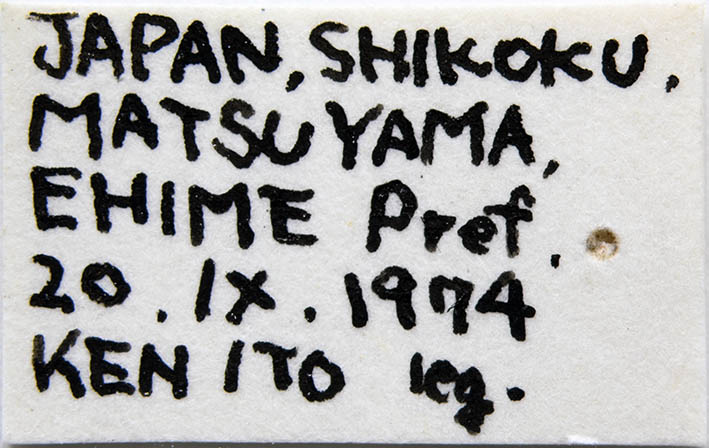 JAPAN, SHIKOKU,
MATSUYAMA,
EHIME Pref.
20. IX. 1974
KEN ITO leg.